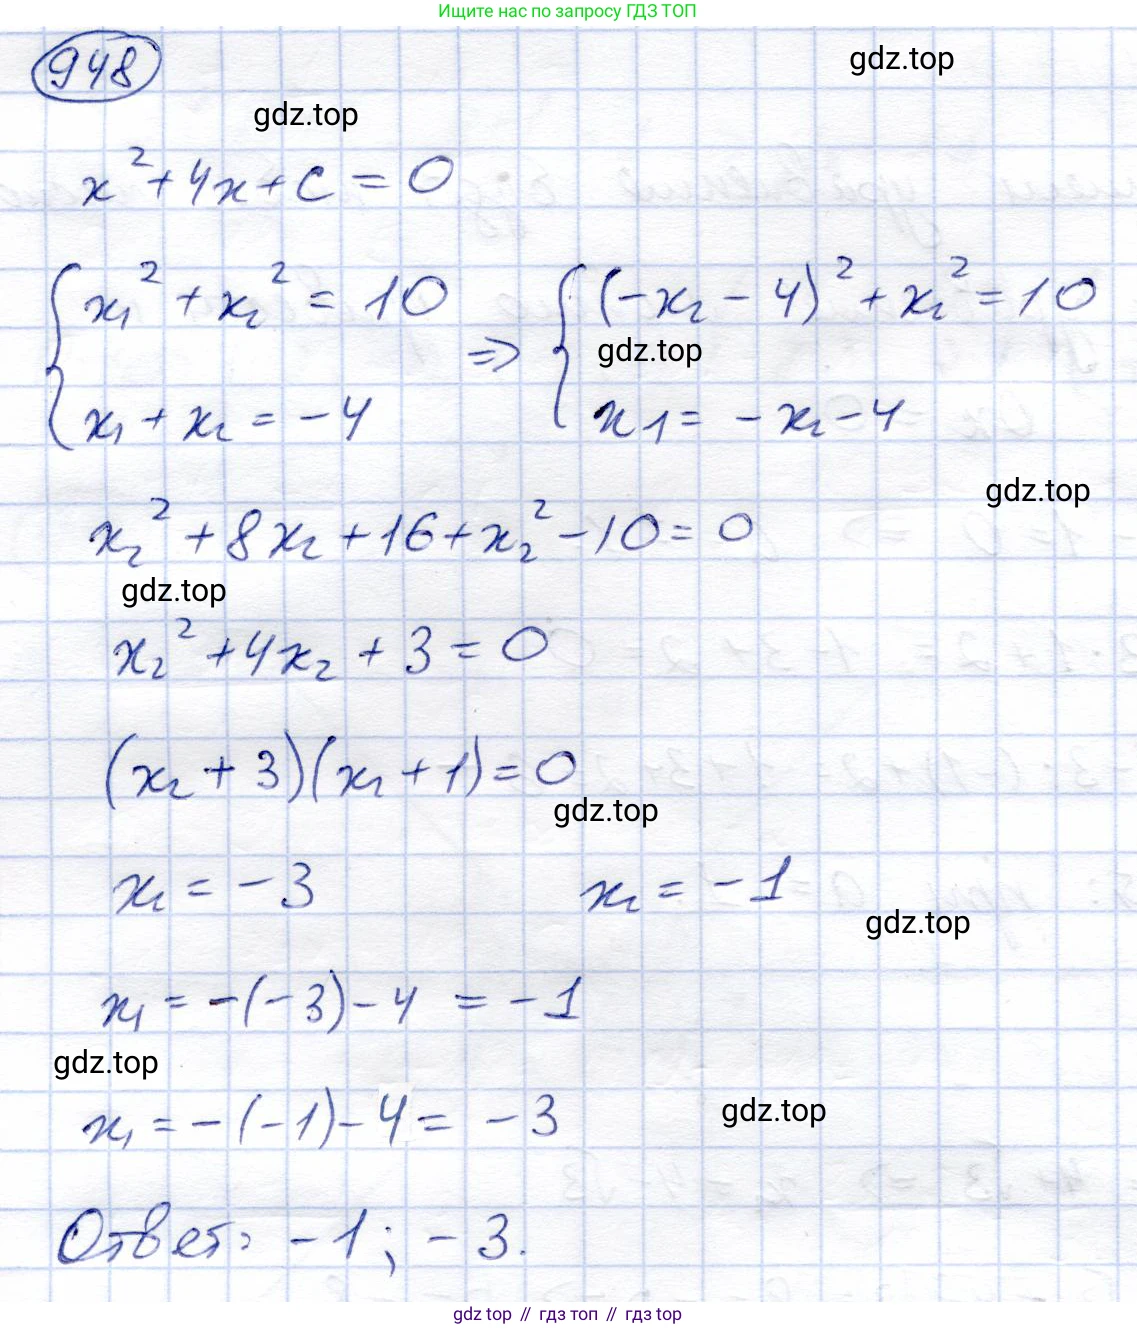 Ищите нас по запросу ГДЗ ТОП
948
gdz.top
gdz.top
x² + 4x + c = 0
{ x₁² + x₂² = 10 ⇒ { (-x₂ - 4)² + x₂² = 10
gdz.top
x₁ + x₂ = -4 x1 = -x₂ - 4
gdz.top
x₂² + 8x₂ + 16 + x₂² - 10 = 0
gdz.top
x₂² + 4x₂ + 3 = 0
(x₂ + 3)(x₂ + 1) = 0
gdz.top
x₂ = -3 x₂ = -1
gdz.top
x₁ = -(-3) - 4 = -1
gdz.top
x₁ = -(-1) - 4 = -3
gdz.top
Ответ: -1; -3.
gdz top // гдз топ // гдз top